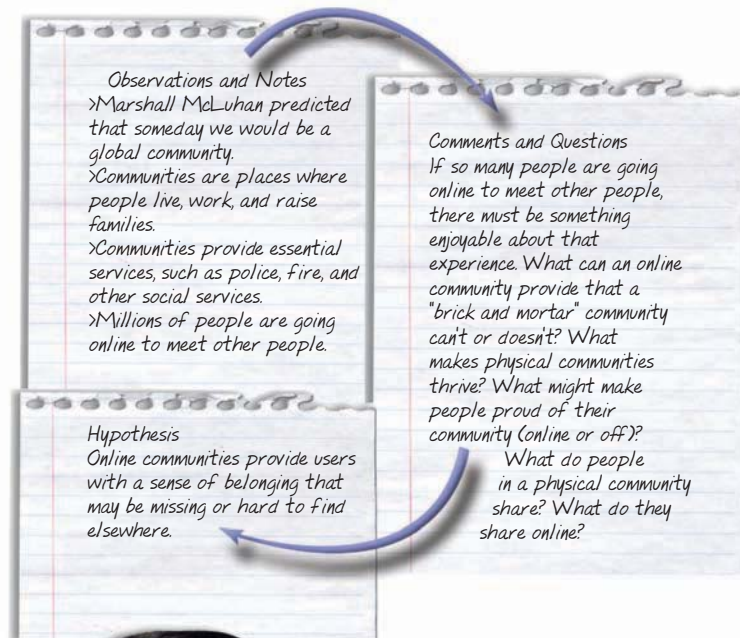 Observations and Notes
>Marshall McLuhan predicted
that someday we would be a
global community.
>Communities are places where
people live, work, and raise
families.
>Communities provide essential
services, such as police, fire, and
other social services.
>Millions of people are going
online to meet other people.
Comments and Questions
If so many people are going
online to meet other people,
there must be something
enjoyable about that
experience. What can an online
community provide that a
"brick and mortar" community
can't or doesn't? What
makes physical communities
thrive? What might make
people proud of their
community (online or off)?
What do people
in a physical community
share? What do they
share online?
Hypothesis
Online communities provide users
with a sense of belonging that
may be missing or hard to find
elsewhere.